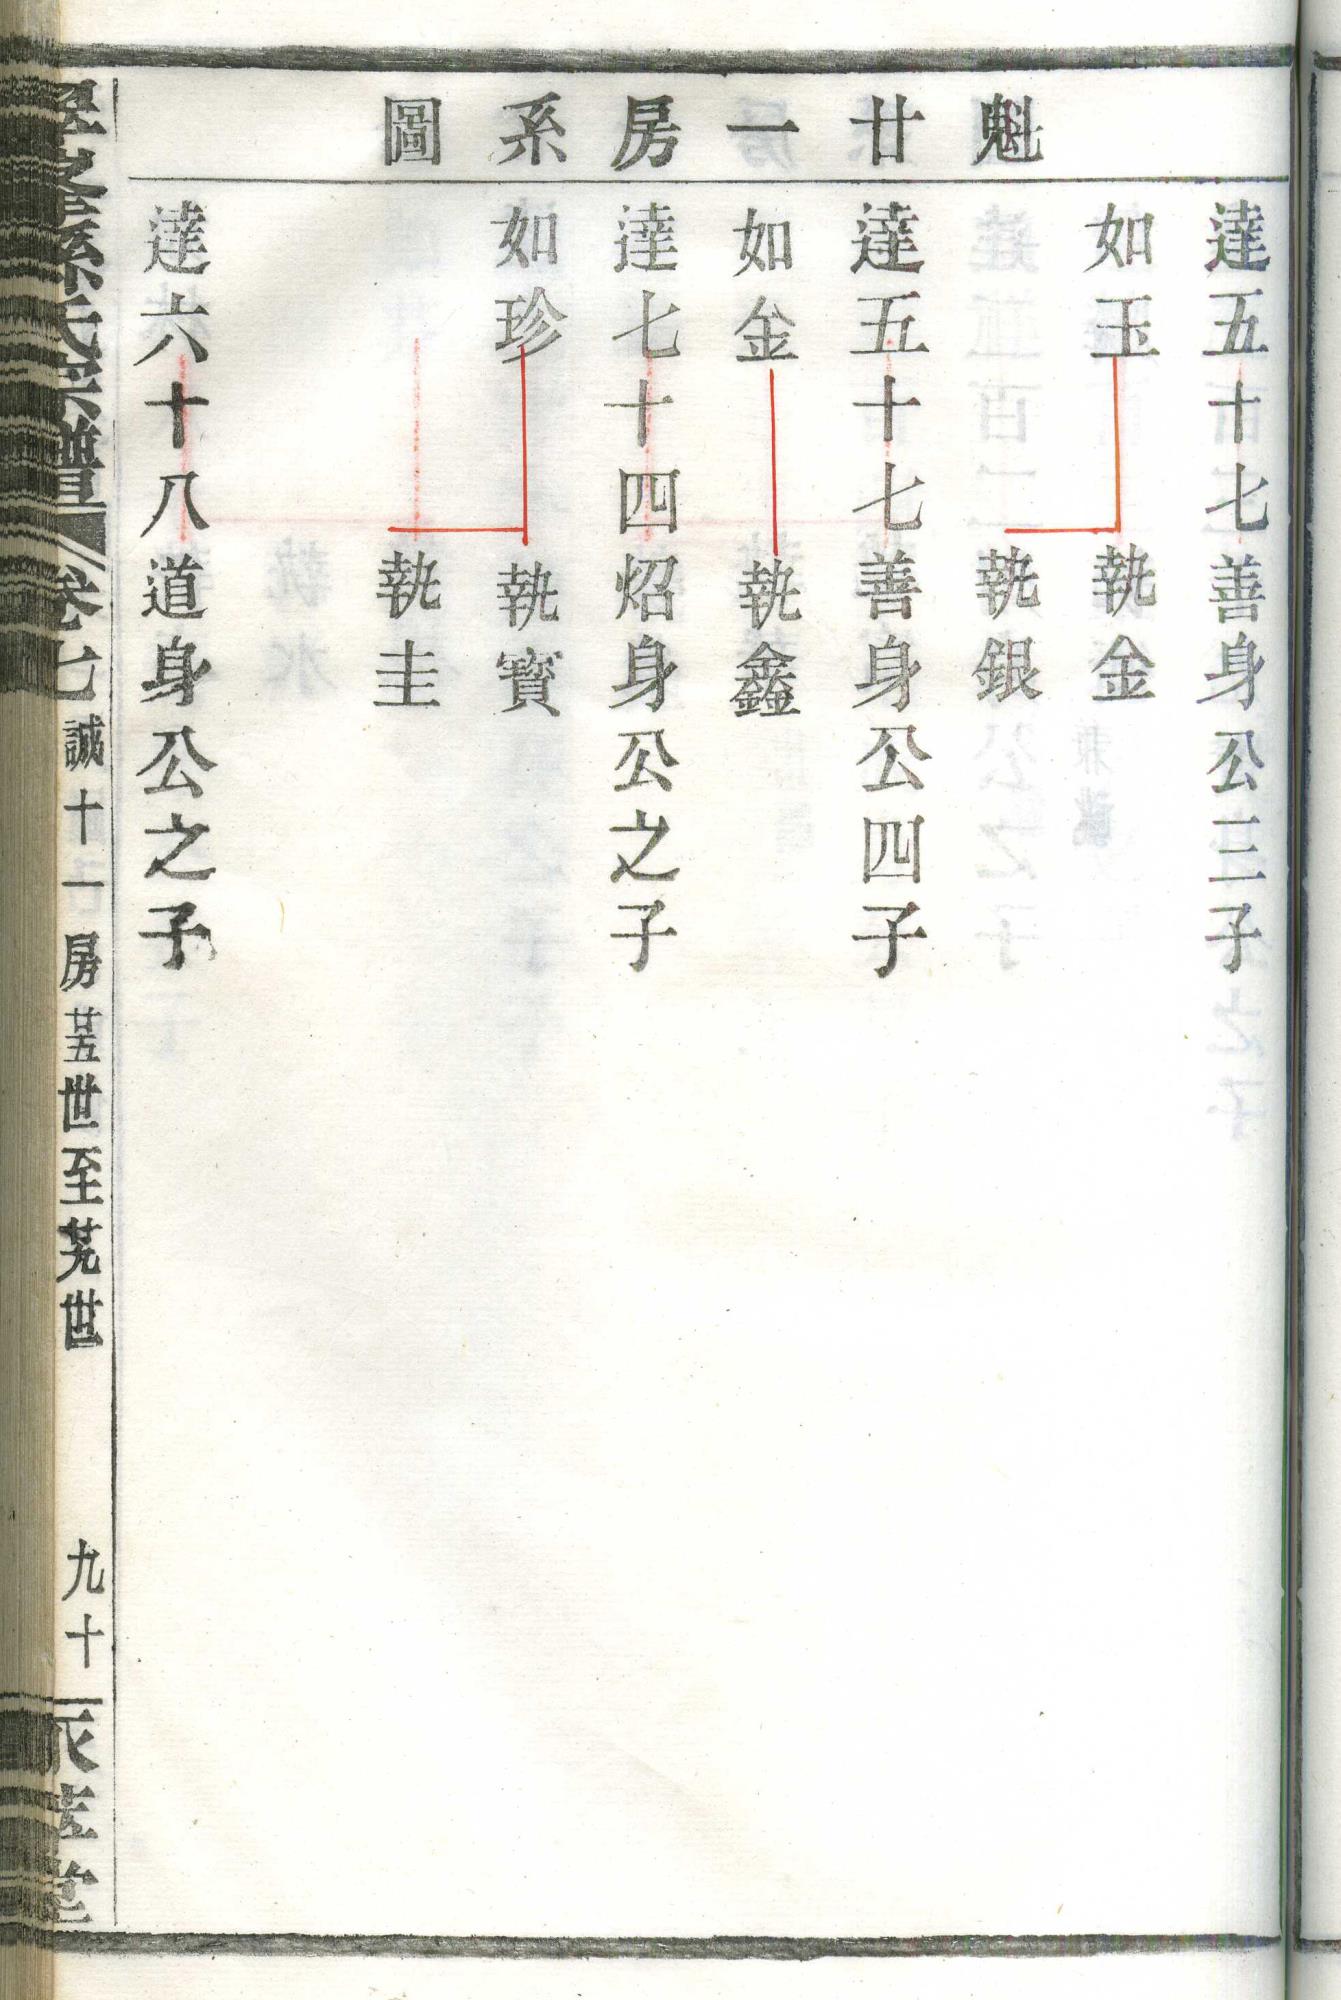 魁廿一房系圖
達五十七善身公三子
如玉
執金
執銀
達五十七善身公四子
如金
執鑫
達七十四炤身公之子
如珍
執寳
執圭
達六十八道身公之子
氏宗譜
卷七
誠十一房
廿五世至廿九世
九十
堂